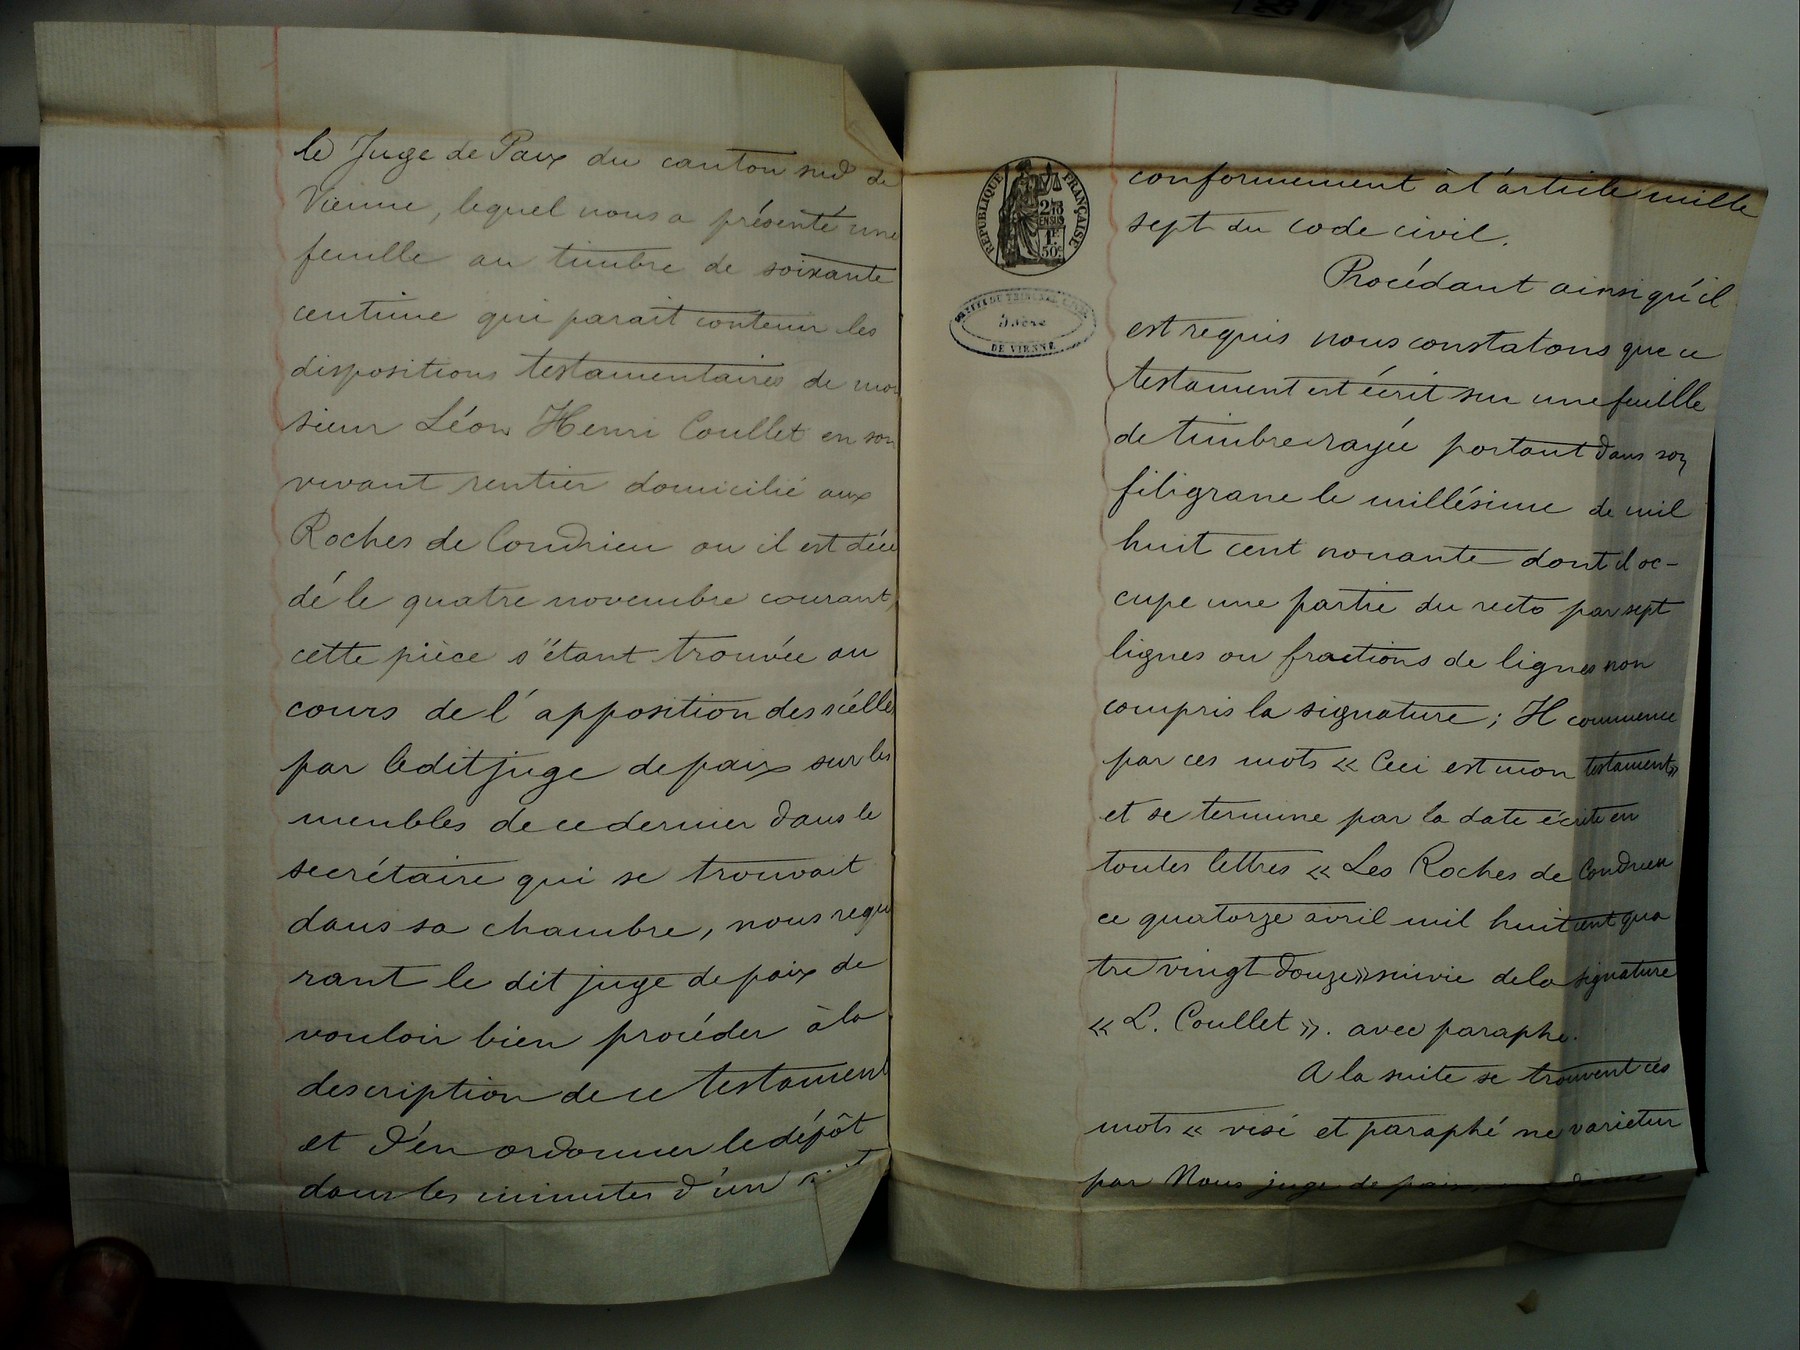 le Juge de Paix du canton sud de
Vienne, lequel nous a présenté une
feuille au timbre de soixante
centime qui parait contenir les
dispositions testamentaires de mon
sieur Léon Henri Coullet en son
vivant rentier domicilié aux
Roches de Condrieu ou il est décé
dé le quatre novembre courant,
cette pièce s'étant trouvée au
cours de l'apposition des scéllés
par ledit juge de paix sur les
meubles de ce dernier dans le
secrétaire qui se trouvait
dans sa chambre, nous requé
rant le dit juge de paix de
vouloir bien procéder à la
description de ce testament
et d'en ordonner le dépôt
dans les minutes d'un
REPUBLIQUE FRANÇAISE
2/10 EN SUS
1F 50c
Isère
DE VIENNE
conformement à l'article mille
sept du code civil.
Procédant ainsi qu'il
est requis nous constatons que ce
testament est écrit sur une feuille
de timbre rayée portant dans son
filigrane le millésime de mil
huit cent nonante dont il oc-
cupe une partie du recto par sept
lignes ou fractions de lignes non
compris la signature; Il commence
par ces mots « Ceci est mon testament »
et se termine par la date écrite en
toutes lettres « Les Roches de Condrieu
ce quatorze avril mil huit cent qua
tre vingt douze» suivie de la signature
« L. Coullet ». avec paraphe.
A la suite se trouvent ces
mots « visé et paraphé ne varietur
par Nous juge de paix